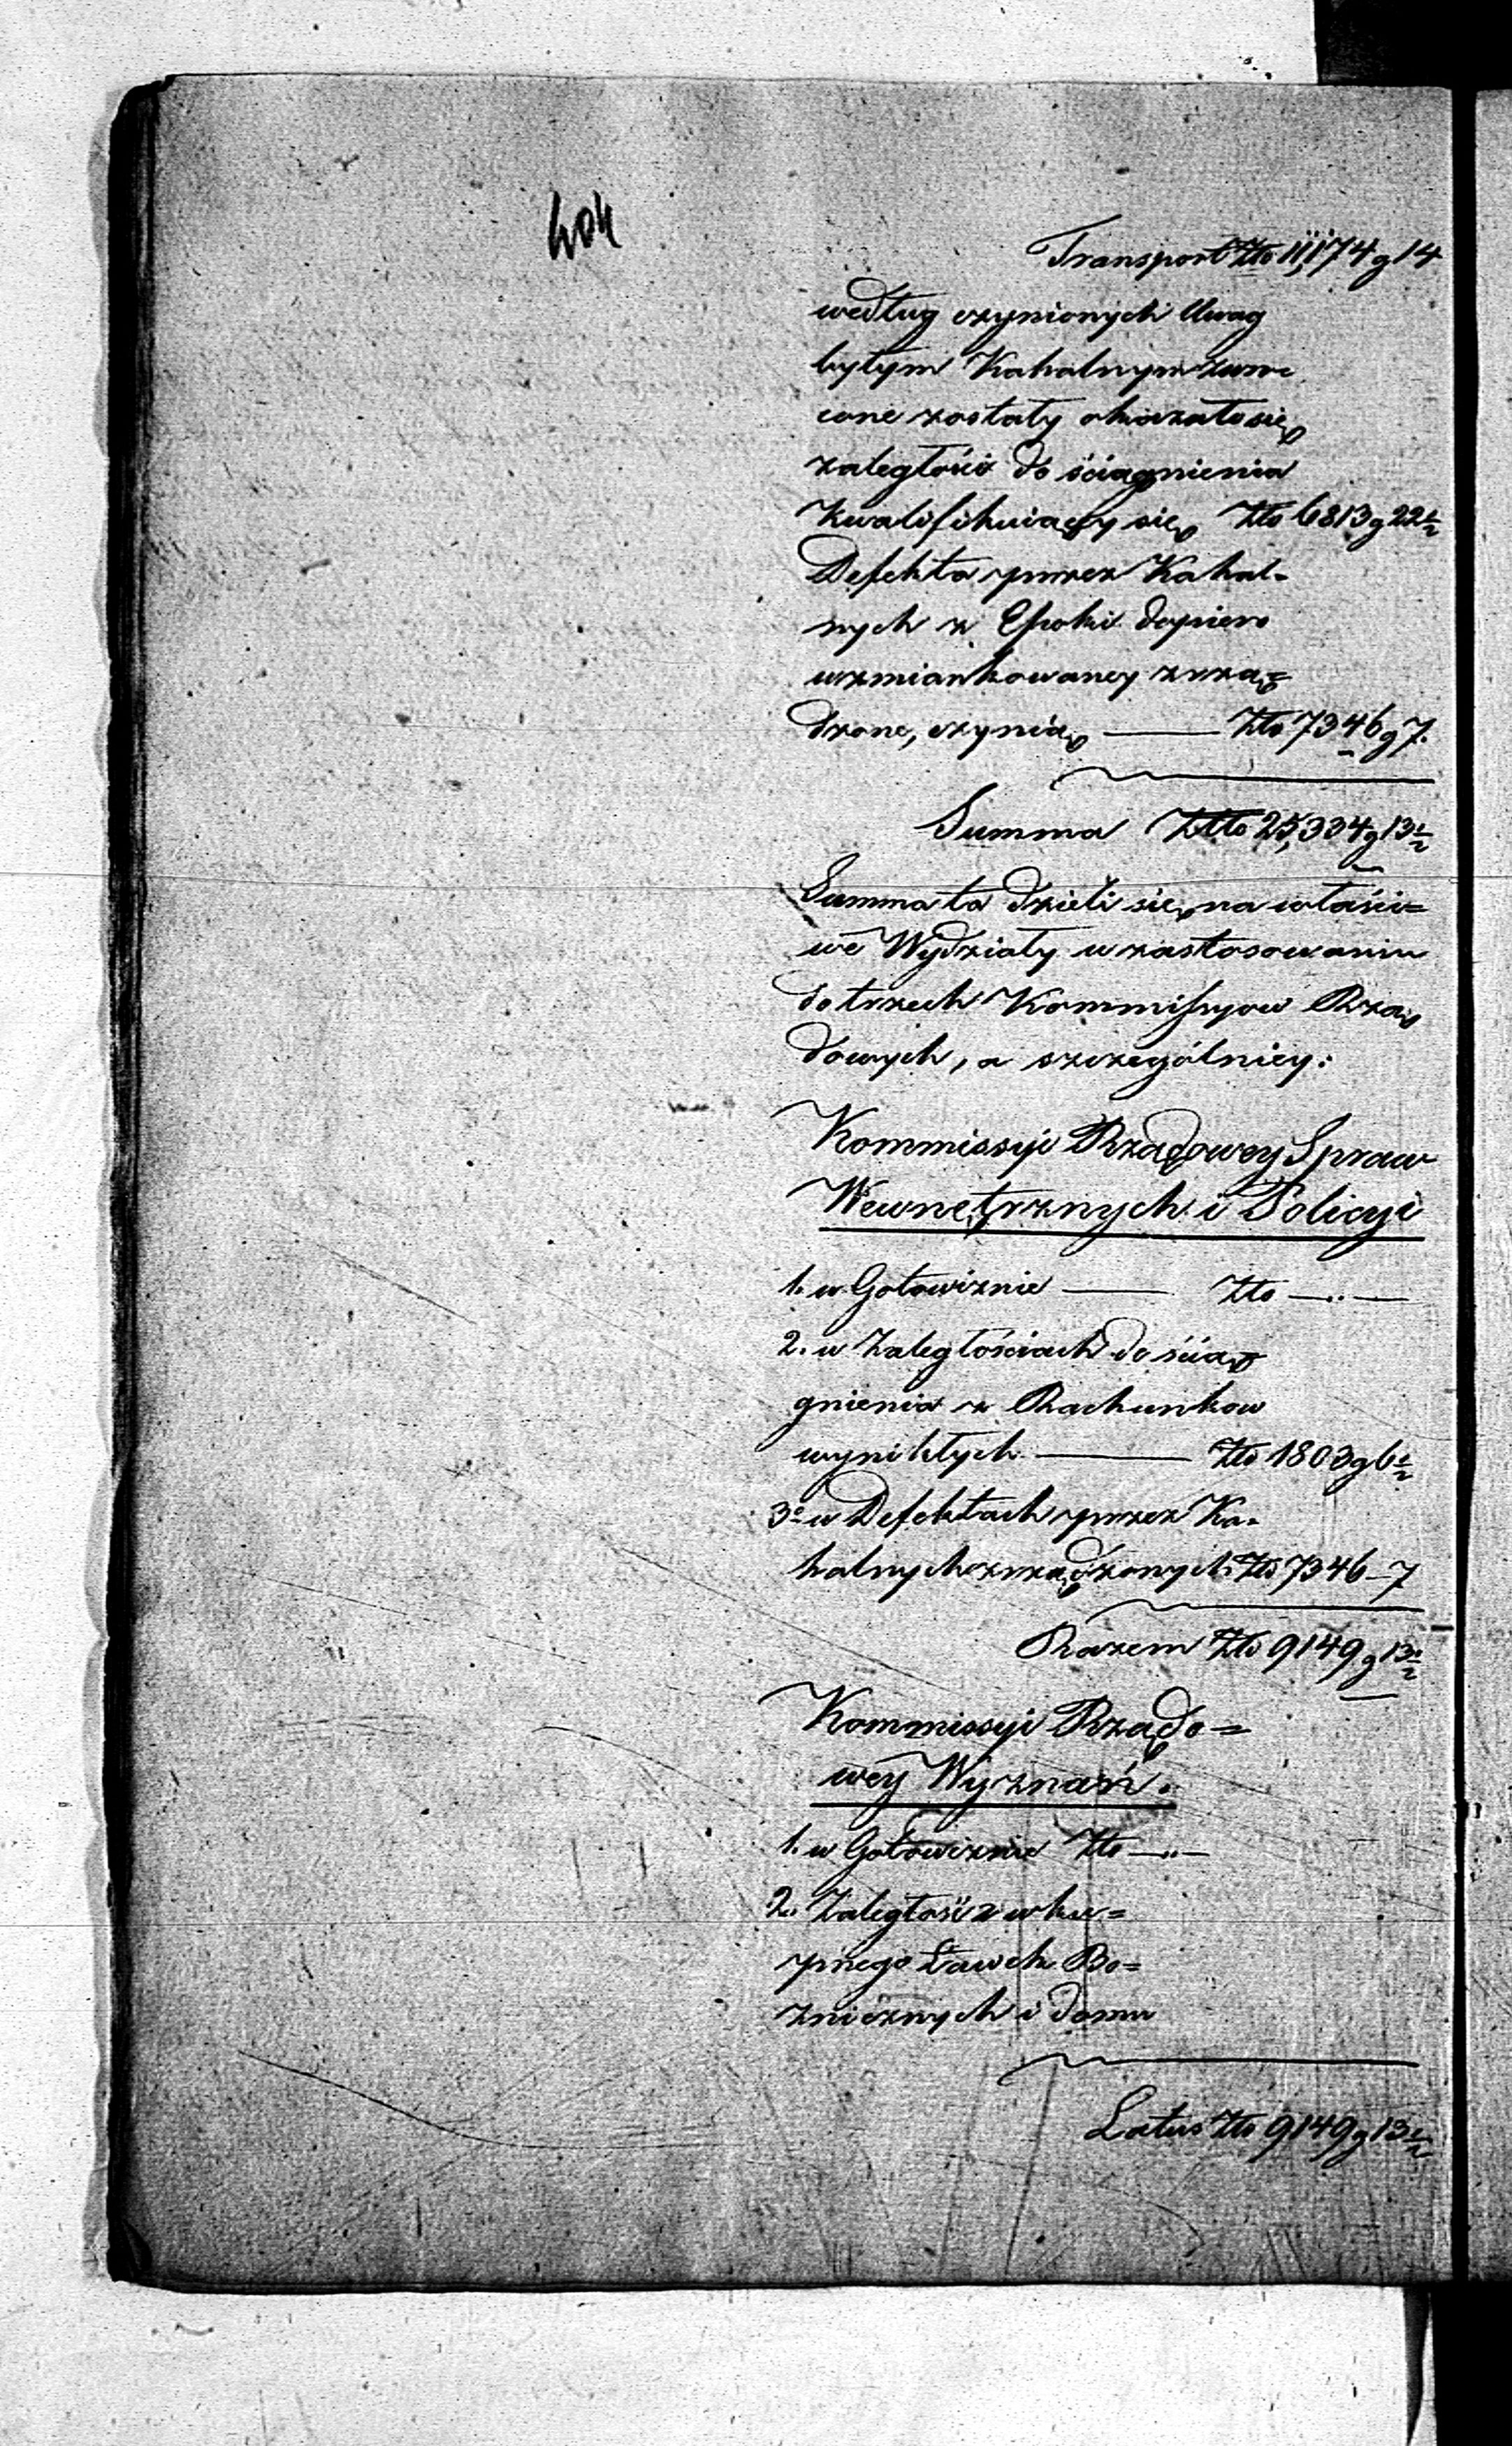 404
Transport Złto 11,174 g 14
według czynionych Uwag
byłym Kahalnym zwró
cone zostały okazało się
zaległości do ściągnienia
kwalifikuiącey się Złto 6813 g 22½
Defekta przez Kahal-
nych z Epoki dopiero
wzmiankowaney zrzą=
dzone, czynią — Złto 7346 g 7.
Summa Złto 25,334 g 13½
Summa ta dzieli się na właści=
we Wydziały w zastosowaniu
do trzech Kommissyow Rzą
dowych, a szczególniey:
Kommissyi Rządowey Spraw
Wewnętrznych i Policyi
1. w Gotowiznie — Złto — .. —
2. w Zaległościach do ścią
gnienia z Rachunkow
wynikłych — Złto 1803 g 6½
3o w Defektach przez Ka-
halnych zrządzonych Złto 7346 - 7
Razem Złto 9149 g 13½
Kommissyi Rządo=
wey Wyznań.
1. w Gotowiznie Złto — .. —
2. Zaległość z wku=
pnego Ławek Bo=
znicznych i domu
Latus Złto 9149 g 13½